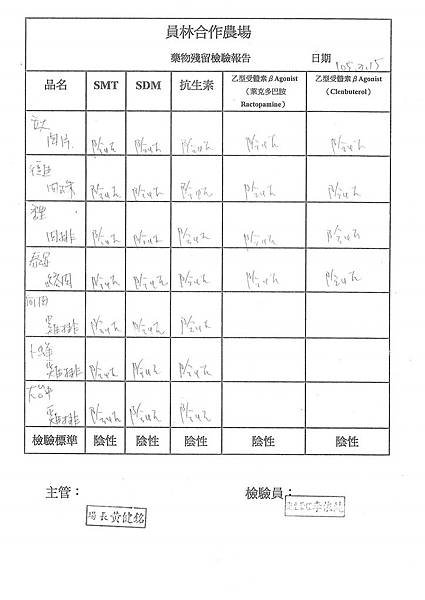 員林合作農場
藥物殘留檢驗報告 日期 105.2.15
品名 SMT SDM 抗生素 乙型受體素βAgonist (萊克多巴胺 Ractopamine) 乙型受體素βAgonist (Clenbuterol)
肉片 陰性 陰性 陰性 陰性 陰性
陰性 陰性 陰性 陰性 陰性
肉排 陰性 陰性 陰性 陰性 陰性
絞肉 陰性 陰性 陰性 陰性 陰性
雞排 陰性 陰性 陰性
卜蜂
雞排 陰性 陰性 陰性
大成
雞排 陰性 陰性 陰性
檢驗標準 陰性 陰性 陰性 陰性 陰性
主管： 檢驗員：
場長黃健銘